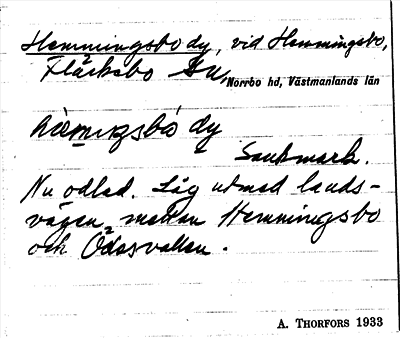 Hemmingsbo dy, vid Hemmingsbo,
Fläckebo sn, Norrbo hd, Västmanlands län
dy
Sankmark.
Nu odlad. Låg utmed lands-
vägen mellan Hemmingsbo
och Ödesvallen.
A. THORFORS 1933